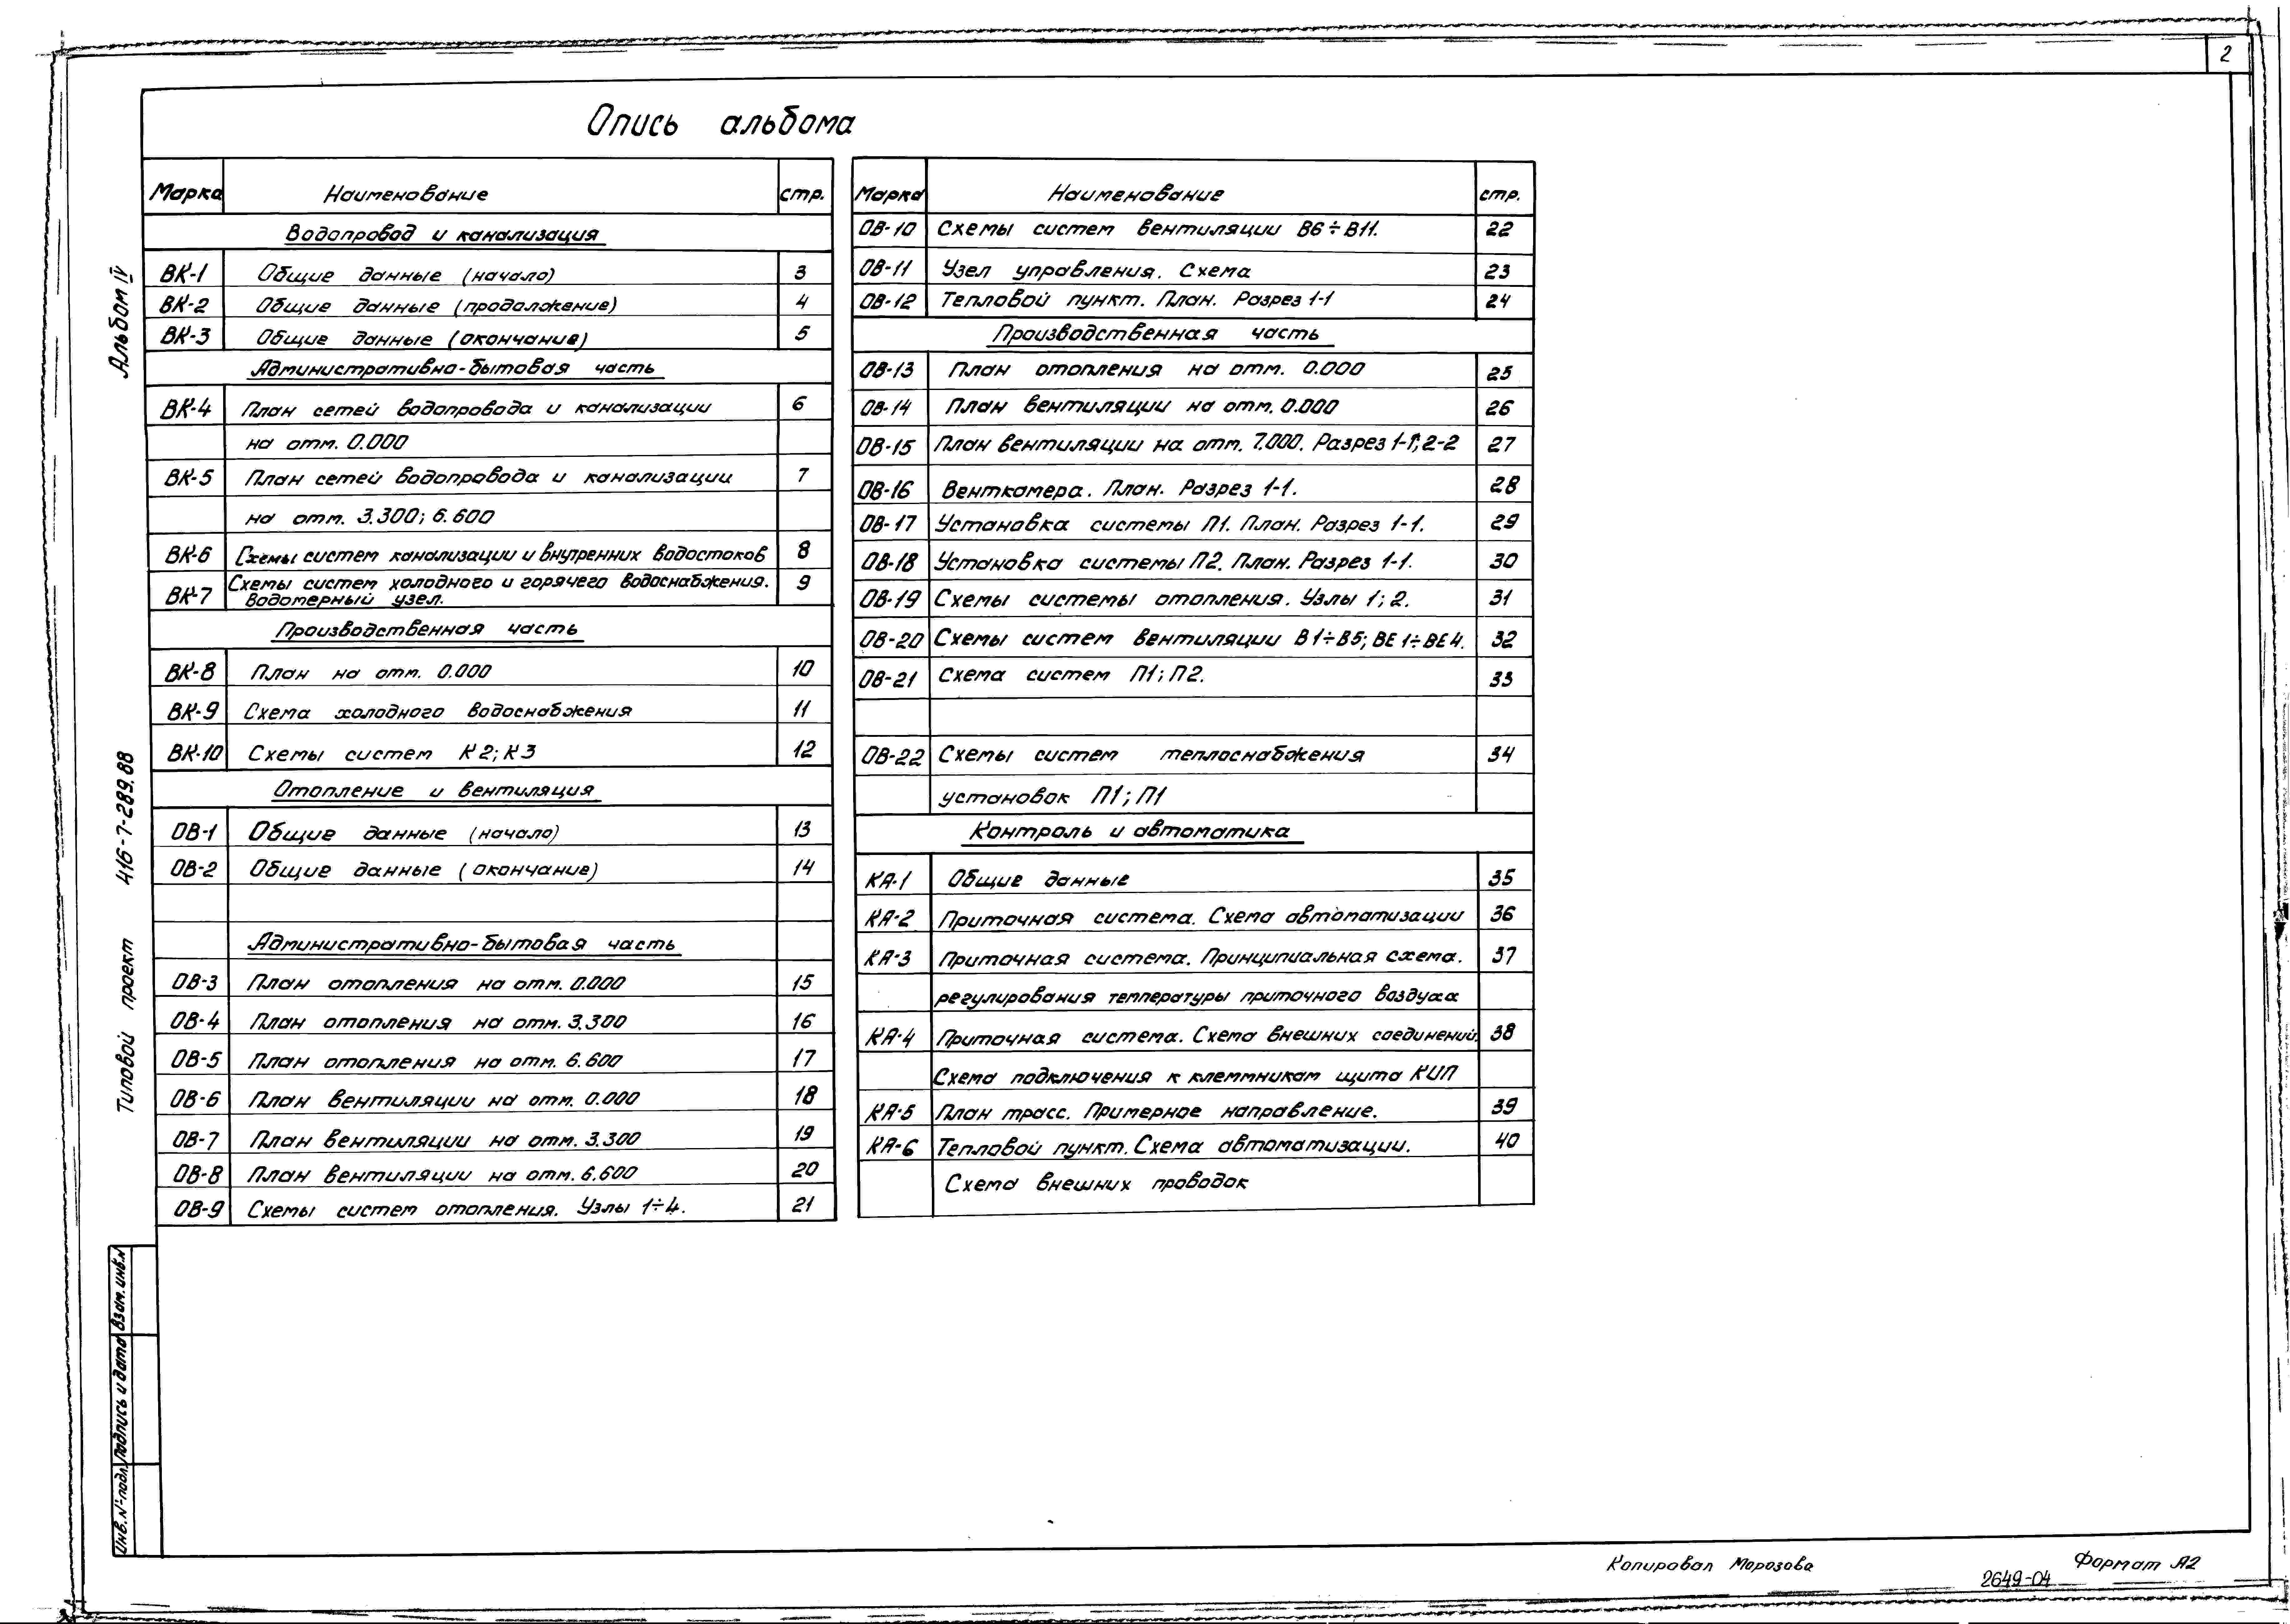 2
Опись альбома
Марка Наименование стр.
Водопровод и канализация
ВК-1 Общие данные (начало) 3
ВК-2 Общие данные (продолжение) 4
ВК-3 Общие данные (окончание) 5
Административно-бытовая часть
ВК-4 План сетей водопровода и канализации 6
на отм. 0.000
ВК-5 План сетей водопровода и канализации 7
на отм. 3.300; 6.600
ВК-6 Схемы систем канализации и внутренних водостоков 8
ВК-7 Схемы систем холодного и горячего водоснабжения. 9
Водомерный узел.
Производственная часть
ВК-8 План на отм. 0.000 10
ВК-9 Схема холодного водоснабжения 11
ВК-10 Схемы систем К2; К3 12
Отопление и вентиляция
ОВ-1 Общие данные (начало) 13
ОВ-2 Общие данные (окончание) 14
Административно-бытовая часть
ОВ-3 План отопления на отм. 0.000 15
ОВ-4 План отопления на отм. 3.300 16
ОВ-5 План отопления на отм. 6.600 17
ОВ-6 План вентиляции на отм. 0.000 18
ОВ-7 План вентиляции на отм. 3.300 19
ОВ-8 План вентиляции на отм. 6.600 20
ОВ-9 Схемы систем отопления. Узлы 1÷4. 21
Марка Наименование стр.
ОВ-10 Схемы систем вентиляции В6÷В11. 22
ОВ-11 Узел управления. Схема 23
ОВ-12 Тепловой пункт. План. Разрез 1-1 24
Производственная часть
ОВ-13 План отопления на отм. 0.000 25
ОВ-14 План вентиляции на отм. 0.000 26
ОВ-15 План вентиляции на отм. 7.000. Разрез 1-1; 2-2 27
ОВ-16 Венткамера. План. Разрез 1-1. 28
ОВ-17 Установка системы П1. План. Разрез 1-1. 29
ОВ-18 Установка системы П2. План. Разрез 1-1. 30
ОВ-19 Схемы системы отопления. Узлы 1; 2. 31
ОВ-20 Схемы систем вентиляции В1÷В5; ВЕ1÷ВЕ4. 32
ОВ-21 Схема систем П1; П2. 33
ОВ-22 Схемы систем теплоснабжения 34
установок П1; П1
Контроль и автоматика
КА-1 Общие данные 35
КА-2 Приточная система. Схема автоматизации 36
КА-3 Приточная система. Принципиальная схема. 37
регулирования температуры приточного воздуха
КА-4 Приточная система. Схема внешних соединений. 38
Схема подключения к клеммникам щита КИП
КА-5 План трасс. Примерное направление. 39
КА-6 Тепловой пункт. Схема автоматизации. 40
Схема внешних проводок
Альбом IV
Типовой проект 416-7-289.88
Взам. инв.N
Подпись и дата
Инв. N подл.
Копировал Морозова
2649-04
Формат А2